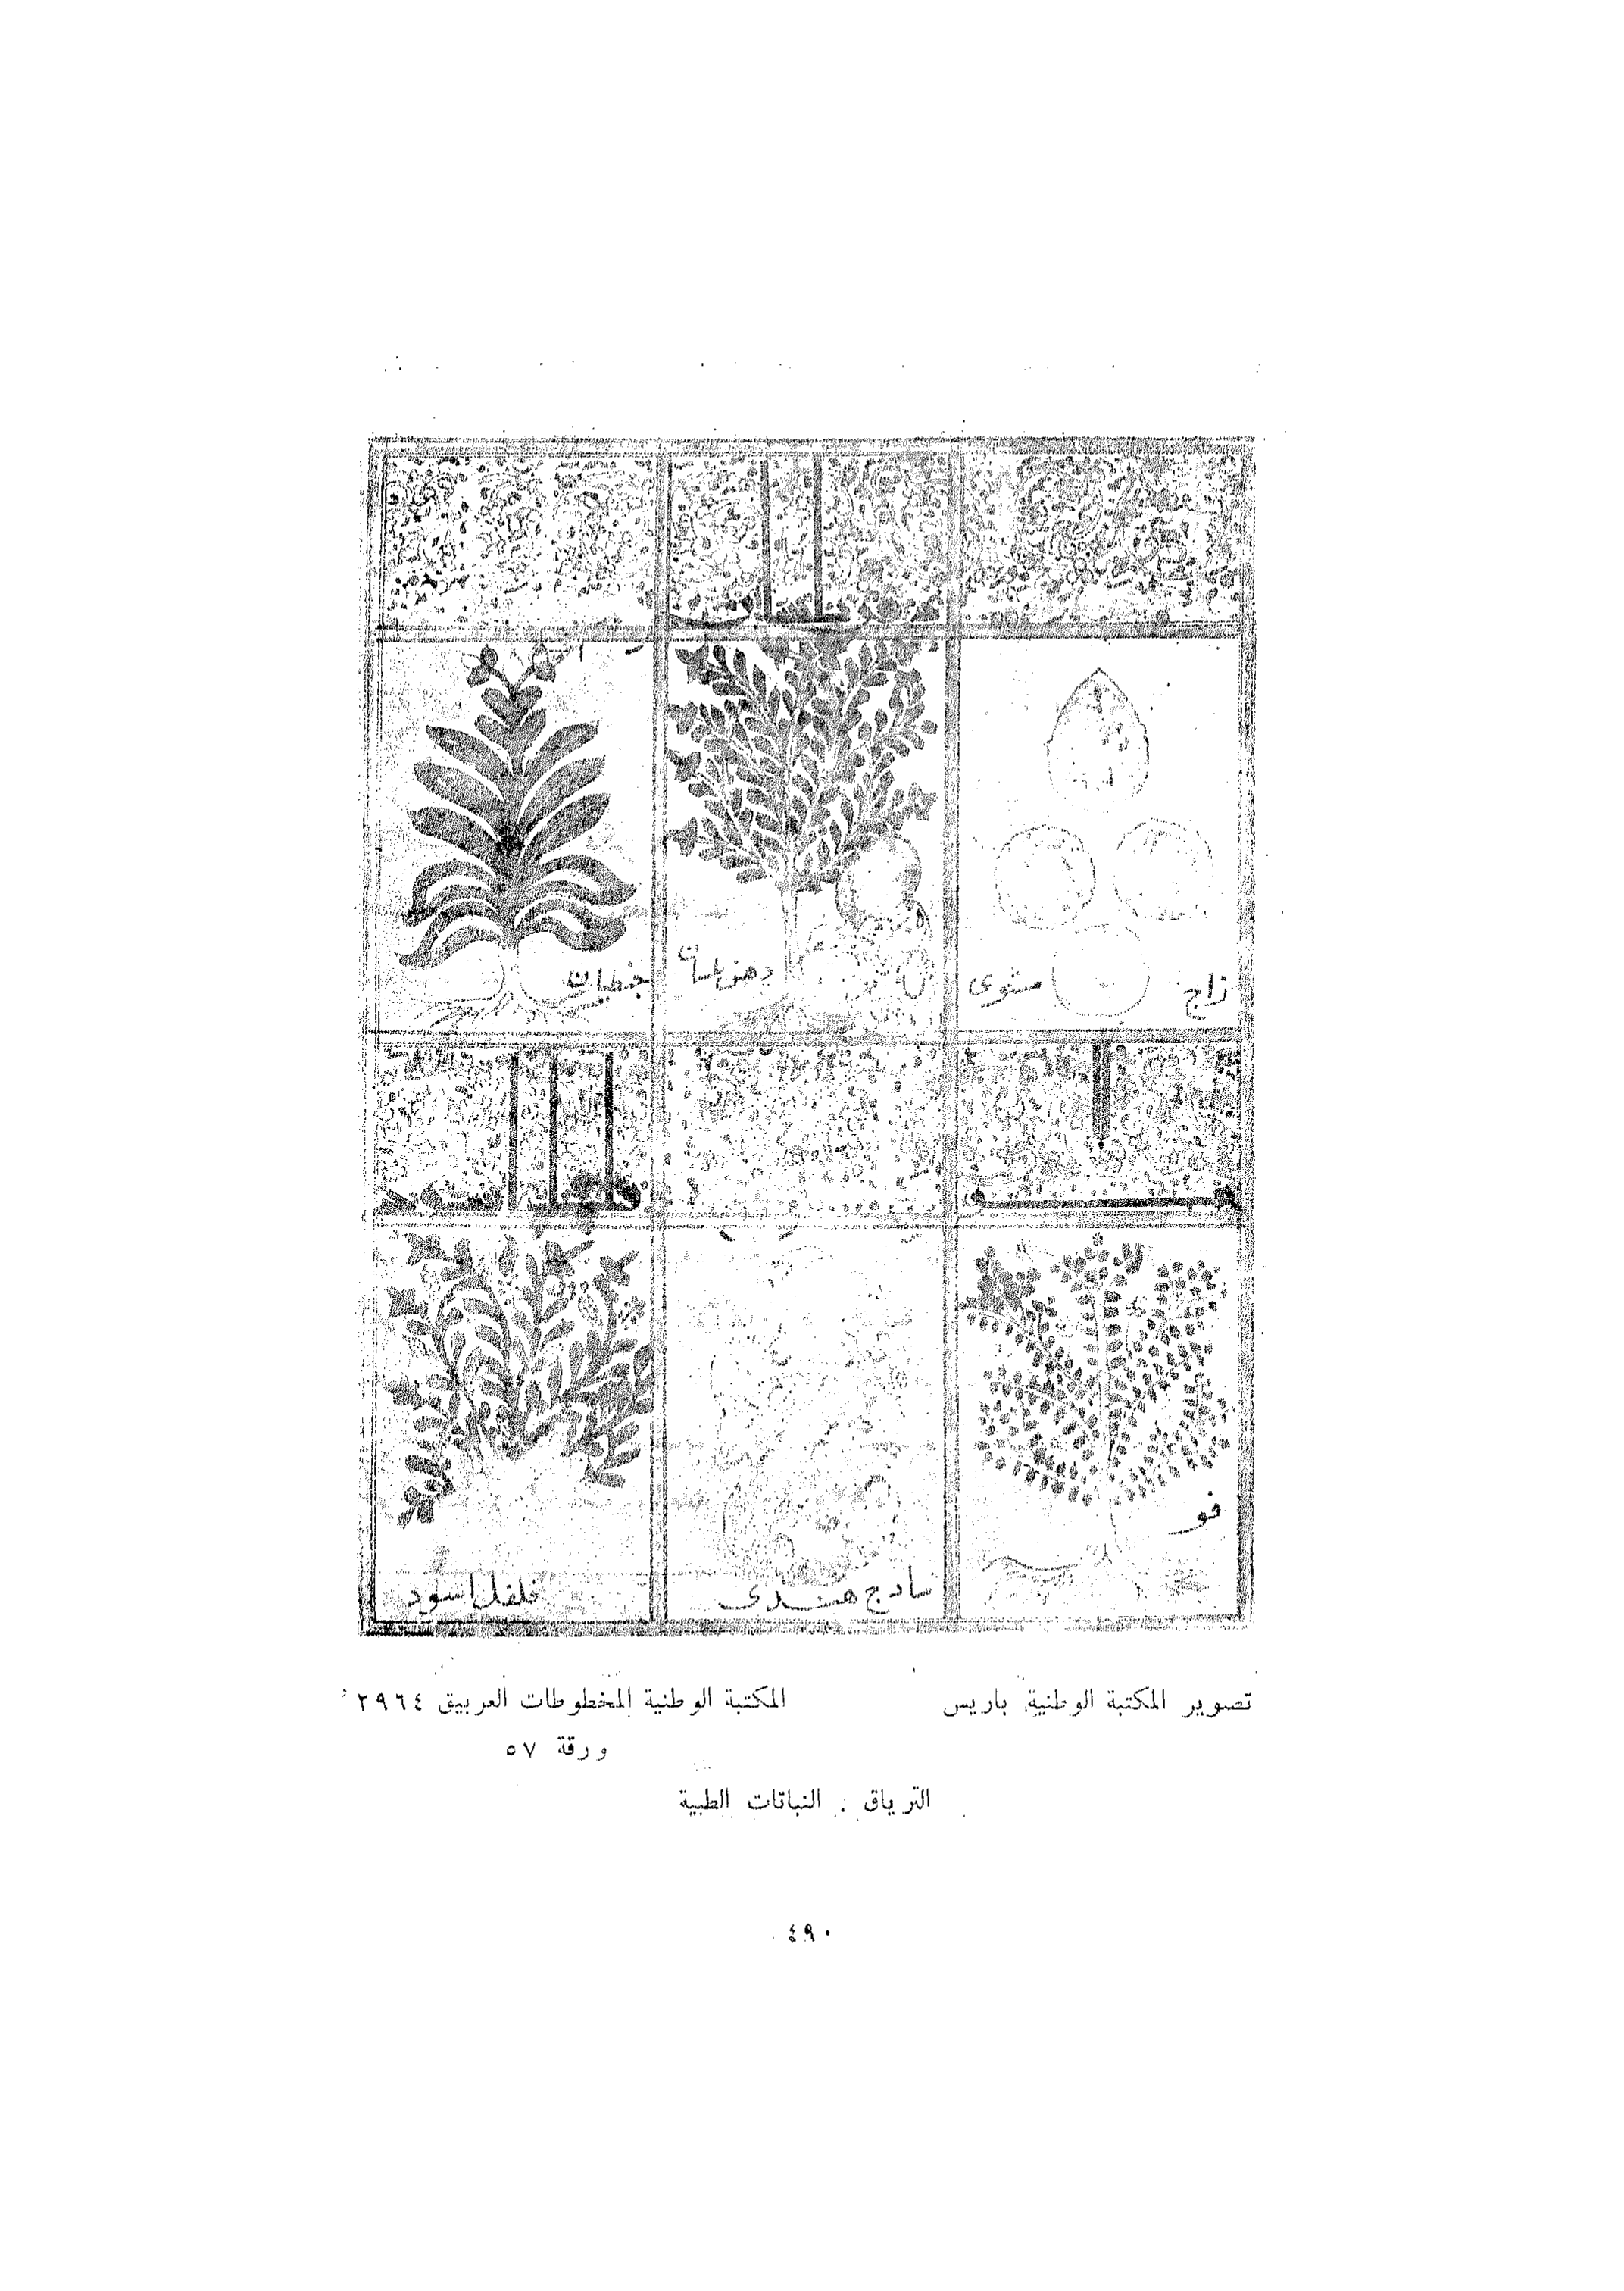 زاج مشوى
دهن بلسان
جنطيان
فو
سادج هندى
فلفل اسود
تصوير المكتبة الوطنية باريس
المكتبة الوطنية المخطوطات العربيق ٢٩٦٤
ورقة ٥٧
الترياق . النباتات الطبية
٤٩٠